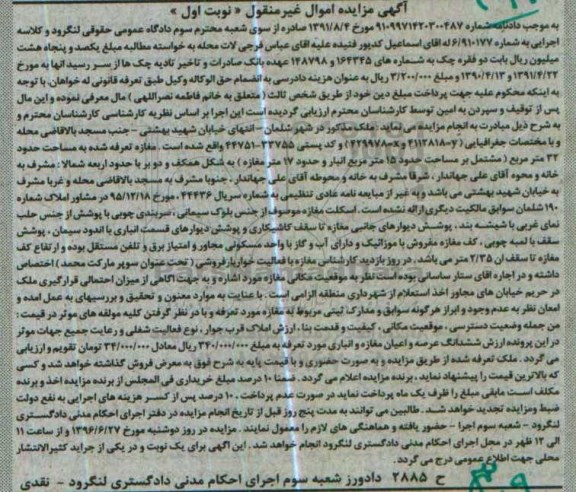 آگهی مزایده اموال غیرمنقول « نوبت اول »
به موجب دادنامه شماره ۹۱۰۹۹۷۱۴۲۰۳۰۰۴۸۷ مورخ ۱۳۹۱/۸/۴ صادره از سوی شعبه محترم سوم دادگاه عمومی حقوقی لنگرود و کلاسه
اجرایی به شماره ۶/۹۱۰۱۷۷ له آقای اسماعیل کدیور فتیده علیه آقای عباس فرجی لات محله به خواسته مطالبه مبلغ یکصد و پنجاه هشت
میلیون ریال بابت دو فقره چک به شماره های ۱۶۴۳۴۵ و ۱۴۸۷۹۸ عهده بانک صادرات و تاخیر تادیه چک ها از سر رسید آنها به مورخ
۱۳۹۱/۴/۲۲ و ۱۳۹۰/۴/۱۳ و مبلغ ۳/۲۰۰/۰۰۰ ریال به عنوان هزینه دادرسی به انضمام حق الوکاله وکیل طبق تعرفه قانونی له خواهان، با توجه
به اینکه محکوم علیه جهت پرداخت مبلغ دین خود از طریق شخص ثالث ( متعلق به خانم فاطمه نصراللهی ) مال معرفی نموده و این مال
پس از توقیف و سپردن به امین توسط کارشناسان محترم ارزیابی گردیده است این اجرا بر اساس نظریه کارشناسی کارشناسان محترم و
به شرح ذیل مبادرت به انجام مزایده می نماید : ملک مذکور در شهر شلمان - انتهای خیابان شهید بهشتی - جنب مسجد بالاقاضی محله
و با مختصات جغرافیایی ( y=۴۱۱۲۸۱۸ و x=۴۲۹۹۷۸) و کد پستی ۳۳۷۵۵-۴۴۷۵۱ واقع شده است . مغازه تعرفه شده به مساحت حدود
۳۲ متر مربع ( مشتمل بر مساحت حدود ۱۵ متر مربع انبار و حدود ۱۷ متر مغازه ) به شکل همکف و دو بر با حدود اربعه شمالا : مشرف به
خانه و محوه آقای علی جهاندار ، شرقا مشرف به خانه و محوطه آقای علی جهاندار ، جنوبا مشرف به مسجد بالاقاضی محله و غربا مشرف
به خیابان شهید بهشتی می باشد و به غیر از مبایعه نامه عادی تنظیمی به شماره سریال ۴۴۴۳۶ ، مورخ ۹۵/۱۲/۱۸ در مشاور املاک شماره
۱۹۰ شلمان سوابق مالکیت دیگری ارائه نشده است . اسکلت مغازه موصوف از جنس بلوک سیمانی ، سربندی چوبی با پوشش از جنس حلب
نمای غربی با شیشه بند ، پوشش دیوارهای جانبی مغازه تا سقف کاشیکاری و پوشش دیوارهای قسمت انباری با اندود سیمان ، پوشش
سقف با لمبه چوبی ، کف مغازه مفروش با موزائیک و دارای آب و گاز با واحد مسکونی مجاور و امتیاز برق و تلفن مستقل بوده و ارتفاع کف
مغازه تا سقف آن ۲/۳۵ متر می باشد . در روز بازدید کارشناس مغازه با فعالیت خواربار فروشی ( تحت عنوان سوپر مارکت محمد ) اختصاص
داشته و در اجاره آقای ستار ساسانی بوده است نظر به موقعیت مکانی مغازه مورد اشاره و به جهت آگاهی از میزان احتمالی قرارگیری ملک
در حریم خیابان های مجاور اخذ استعلام از شهرداری منطقه الزامی است . با عنایت به موارد معنون و تحقیق و بررسیهای به عمل آمده و
امعان نظر به عدم وجود و ابراز هر گونه سوابق و مدارک ثبتی مربوط به مغازه مورد تعرفه و با در نظر گرفتن کلیه مولفه های موثر در قیمت :
من جمله وضعیت دسترسی ، موقعیت مکانی ، کیفیت و قدمت بنا ، ارزش املاک قرب جوار ، نوع فعالیت شغلی و رعایت جمیع جهات موثر
در این پرونده ارزش ششدانگ عرصه و اعیان مغازه و انباری مورد تعرفه به مبلغ ۳۴۰/۰۰۰/۰۰۰ ریال معادل ۳۴/۰۰۰/۰۰۰ تومان تقویم و ارزیابی
می گردد . ملک تعرفه شده از طریق مزایده و به صورت حضوری و با قیمت پایه به شرح فوق به معرض فروش گذاشته خواهد شد و کسی
که بالاترین قیمت را پیشنهاد نماید ، برنده مزایده اعلام می گردد . ضمنا ۱۰ درصد مبلغ خریداری فی المجلس از برنده مزایده اخذ و برنده
مکلف است مابقی مبلغ را ظرف یک ماه پرداخت نماید در صورت عدم پرداخت ، ۱۰ درصد پس از کسر هزینه های اجرایی به نفع دولت
ضبط ومزایده تجدید خواهد شد . طالبین می توانند به مدت پنج روز قبل از تاریخ انجام مزایده در دفتر اجرای احکام مدنی دادگستری
لنگرود - شعبه سوم اجرا - حضور یافته و هماهنگی های لازم را معمول نمایند . مزایده در روز دوشنبه مورخ ۱۳۹۶/۶/۲۷ و از ساعت ۱۱
الی ۱۲ ظهر در محل اجرای احکام مدنی دادگستری لنگرود انجام خواهد شد . این آگهی برای یک نوبت و در یکی از جراید کثیرالانتشار
محلی جهت اطلاع عمومی درج می گردد .
ح ۲۸۸۵ دادورز شعبه سوم اجرای احکام مدنی دادگستری لنگرود - نقدی